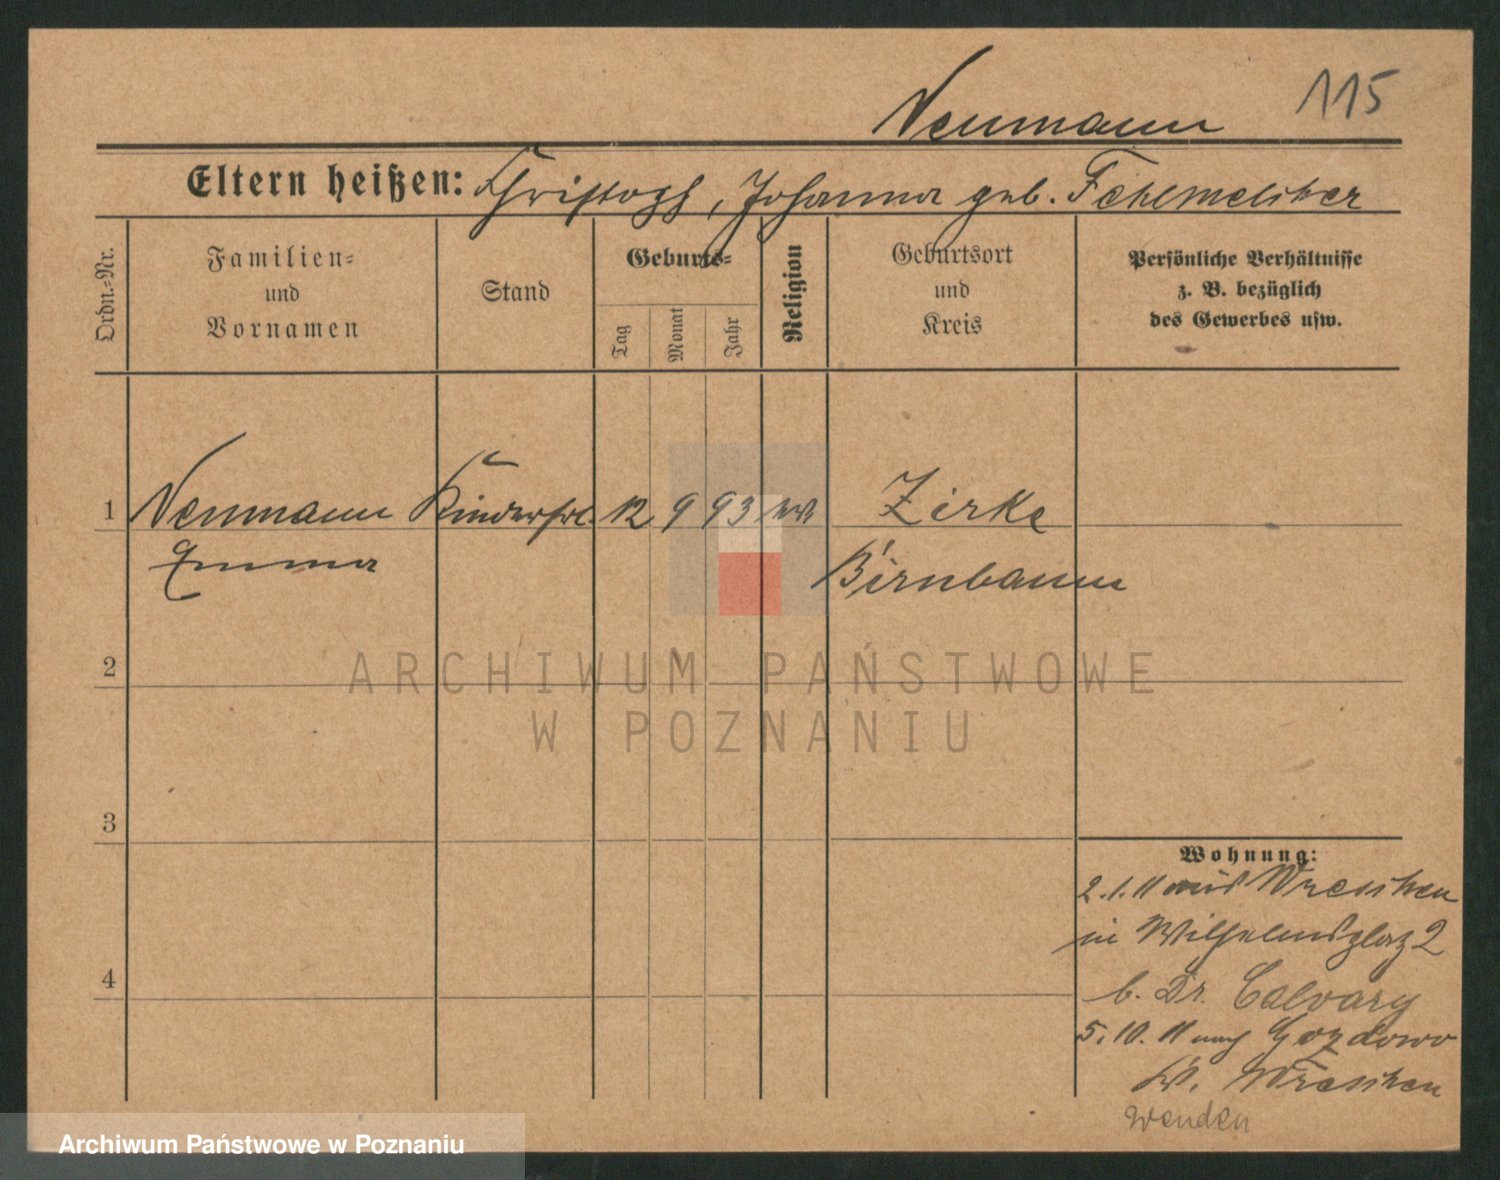 Neumann 115
Eltern heißen: Christoph, Johanna geb. Fehlmeister
Ordn.-Nr.
Familien-
und
Vornamen
Stand
Geburts-
Tag
Monat
Jahr
Religion
Geburtsort
und
Kreis
Persönliche Verhältnisse
z. B. bezüglich
des Gewerbes usw.
1 Neumann Kinderfrl. 12 9 93 ev Zirke
Emma Birnbaum
2
3
4
Wohnung:
2.1.11 aus Wreschen
in Wilhelmsplatz 2
b. Dr. Calvary
5.10.11 nach Gozdowo
Kr. Wreschen
wenden
ARCHIWUM PAŃSTWOWE
W POZNANIU
Archiwum Państwowe w Poznaniu